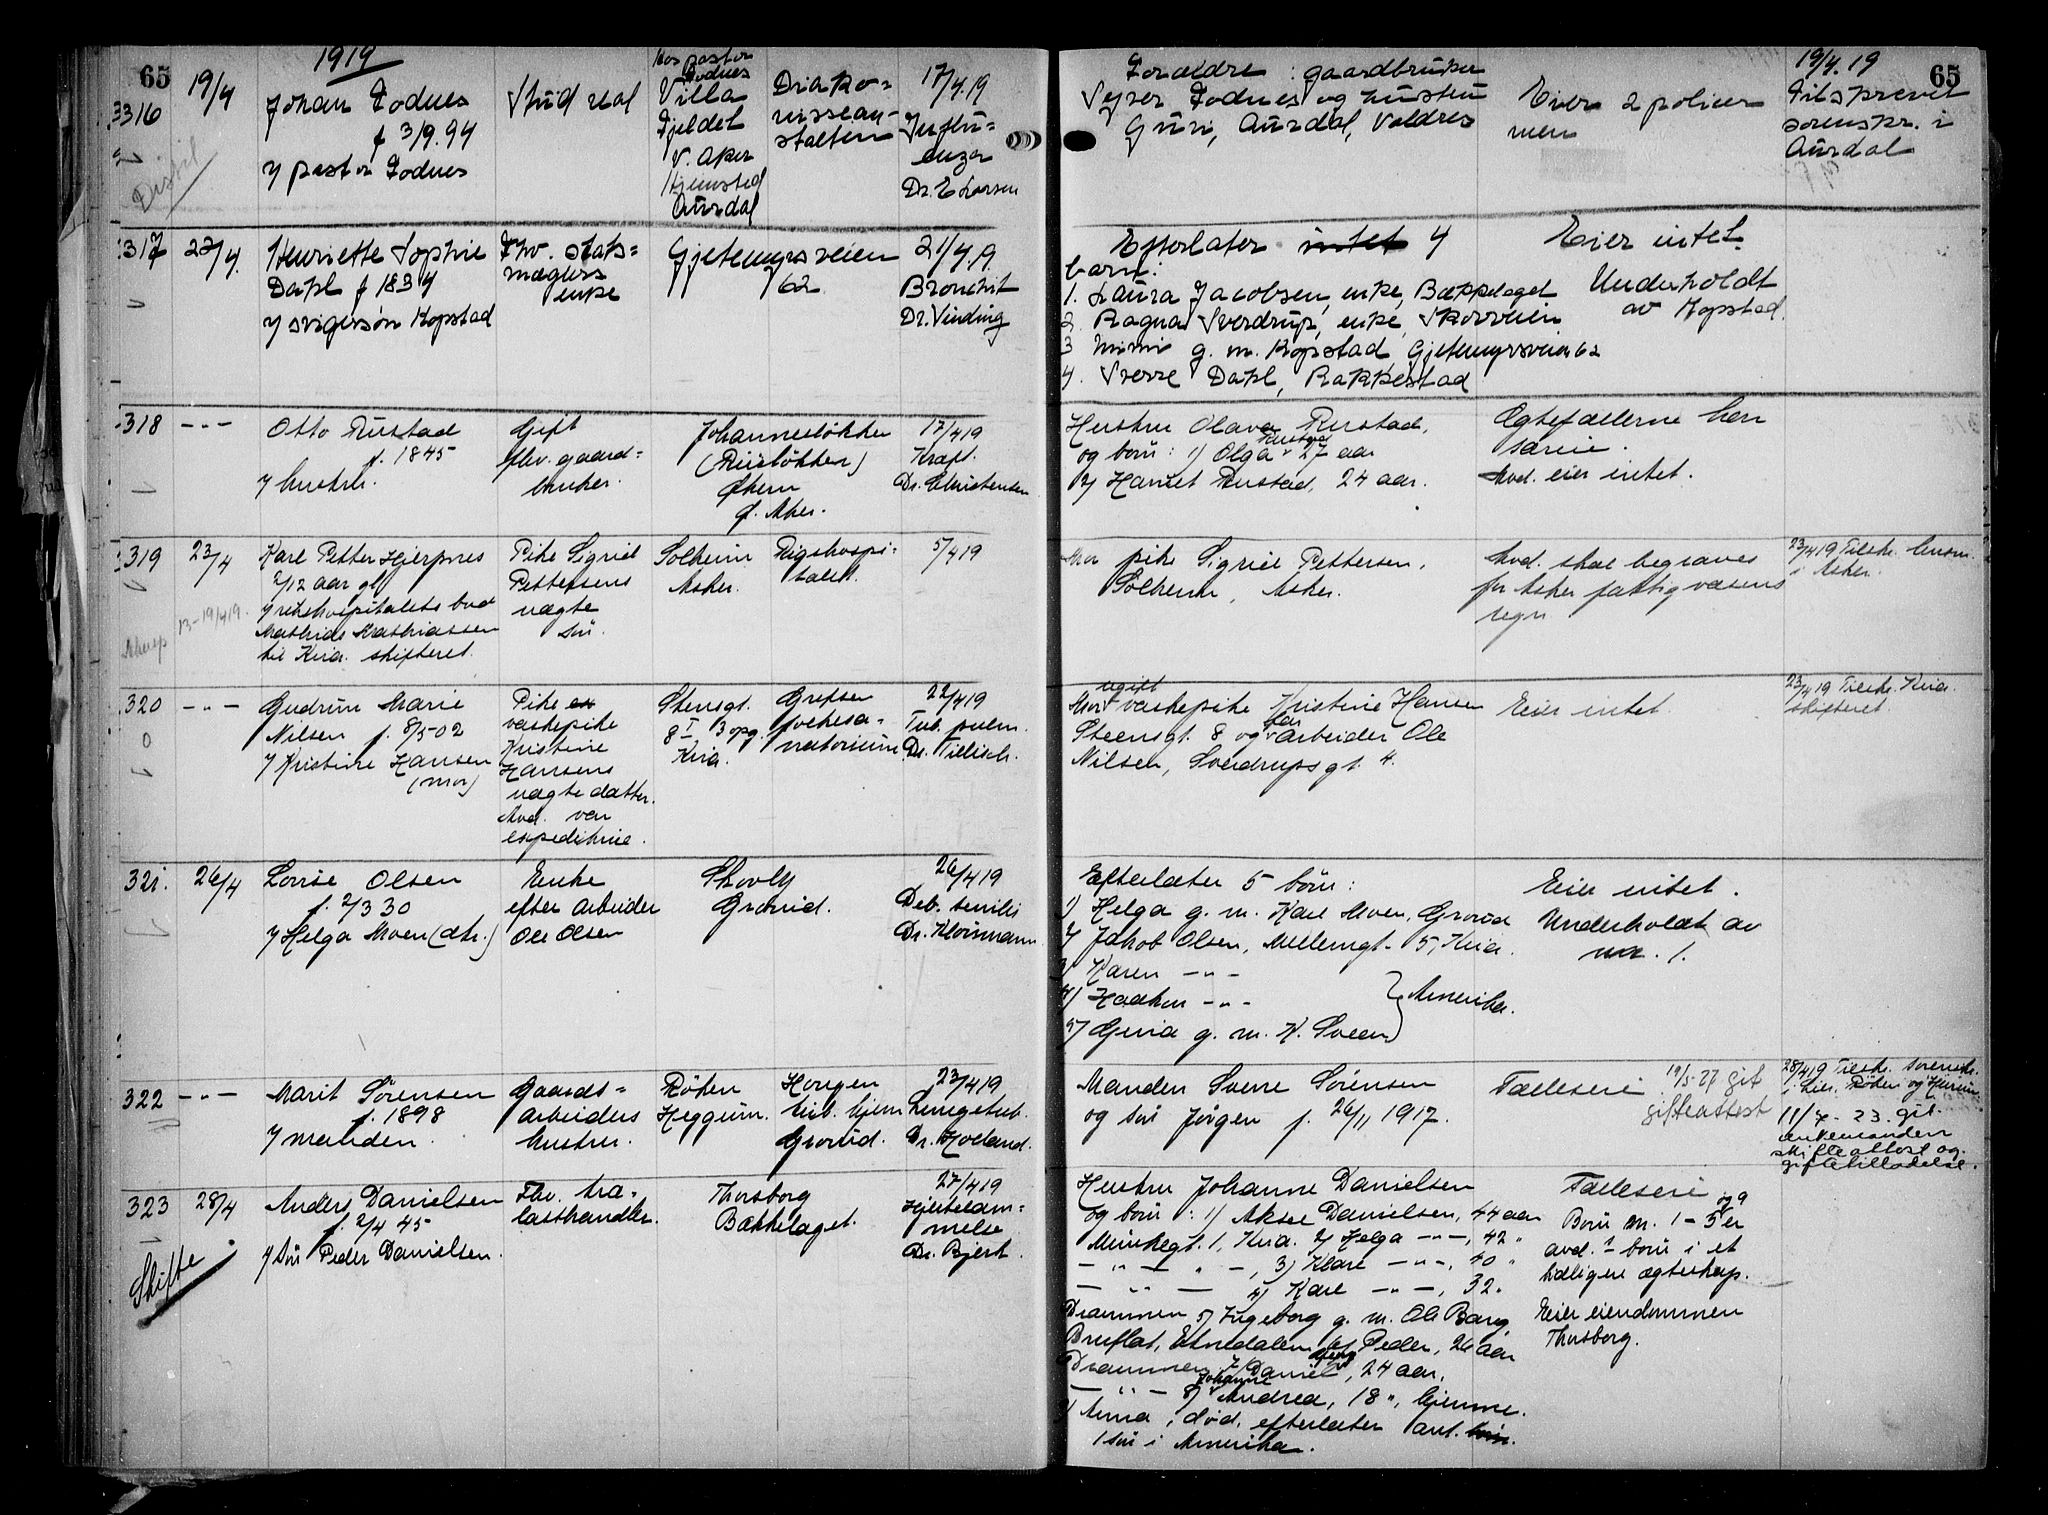 65
1919
3316
19/4
Johan Fodnes
f 3/9.94
v pastor Fodnes
Stud real
Hos pastor
Fodnes
Villa
Fjeldet
V. Aker
Hjemsted
Aurdal
Diako=
nissean-
stalten
17/4.19
Influ=
enza
Dr. E Larsen
Forældre : gaardbruker
Fodnes og hustru
Guri, Aurdal, Valdres
Eier 2 poliser
men
19/4.19
65
Tilskrevet
sorenskr. i
Aurdal
317
22/4.
Henriette Sophie
Dahl f 1834
v svigersøn Kopstad
Fhv. stats=
mæglers
enke
Gjetemyrsveien
62
21/4.19.
Bronchit
Dr. Vinding
Efterlater intet 4
barn:
1. Laura Jacobsen, enke, Bækkelaget
2. Ragna Sverdrup, enke, Skovveien
3 Mimi g. m. Kopstad Gjetemyrsveien 62
4. Sverre Dahl, Rakkestad
Eier intet.
Underholdt
av Kopstad.
318
-"-
Otto Rustad
f. 1845
v hustru.
Gift
fhv. gaard=
bruker.
Johannesløkken
(Riisløkken)
Økern
Ø. Aker.
17/4 19
Kræft.
Dr. Christensen
Hustru Olava Rustad,
og børn: 1) Olga Rustad 27 aar
2) Harriet Rustad, 24 aar.
Ægtefællerne hen
særeie.
Avd. eier intet.
319
23/4
Karl Petter Hjerpnes
2/12 aar gl
v rikshospitalets bud
Mathias Mathiassen
til Kria. skifteret.
13-19/4 19.
Pike Sigrid
Pettersens
uægte
søn.
Solheim
Asker.
Rigshospi-
talet.
5/4 19
Mor pike Sigrid Pettersen,
Solheim, Asker.
Avd. skal begraves
for Asker fattigvæsens
regn
23/4 19 Tilskr. lensm.
i Asker.
320
-"-
Gudrun Marie
Nilsen f. 8/5-02
v Kristine Hansen
(mor)
Pike
vaskepike
Kristine
Hansens
uægte datter.
Avd. var
expeditrice.
Stensgt.
8 I 3 opg.
Kria.
Grefsen
folkesa-
natorium
22/4 19
Tub. pulm.
Dr. Tillisch.
Mor ugift vaskepike Kristine Hansen
Steensgt. 8 og far arbeider Ole
Nilsen, Sverdrupsgt. 4.
Eier intet.
23/4 19 Tilskr. Kria.
skifteret.
321.
26/4
Lovise Olsen
f. 2/3 30
v Helga Moen (dtr.)
Enke
efter arbeider
Ole Olsen
Skovly
Grorud.
26/4 19
Deb. senilis
Dr. Kloumann
Efterlater 5 børn:
1) Helga g. m. Karl Moen, Grorud
2) Jakob Olsen, Møllerngt. 5, Kria.
3) Karen -"-
4) Haakon -"- } Amerika.
5) Gina g. m. K. Sveen
Eier intet.
Underholdt av
nr. 1.
322
-"-
Marit Sørensen
f. 1898
v manden.
Gaards=
arbeiders
hustru.
Røken
Heggum.
Haugen
tub. hjem
Grorud.
23/4 19
Lungetub.
Dr. Hoeland.
Manden Sverre Sørensen
og søn Jørgen f. 26/11 1917.
Fælleseie
19/5-27 git
gifteattest
28/4 19 Tilskr. sorenskr.
i Lier, Røken og Hurum
11/7-23. git
enkemanden
skifteattest og
giftetilladelse.
323
28/4
Skifte
Anders Danielsen
f. 2/4 45
v søn Peder Danielsen.
Fhv. tra-
lasthandler.
Thorsborg
Bækkelaget.
27/4 19
Hjertelam=
melse
Dr. Bjert.
Hustru Johanne Danielsen
og børn: 1) Aksel Danielsen, 44 aar
Munkegt. 1, Kria. 2) Helga -"-, 42 "
-"- " -, 3) Klare -"-, 40 "
-"- 4) Karl -"-, 32 "
Drammen 5) Ingeborg g. m. Ole Bang
Bruflat, Etnedalen 6) Peder, 26 aar
Drammen 7) Daniel, 24 aar.
-"- 8) Johanne Andrea, 18 ", hjemme.
9) Anna, død. efterlater ant.
1 søn i Amerika.
Fælleseie
Børn nr. 1-5 og 9 er
avd.s børn i et
tidligere ægteskap.
Eier eiendommen
Thorsborg.